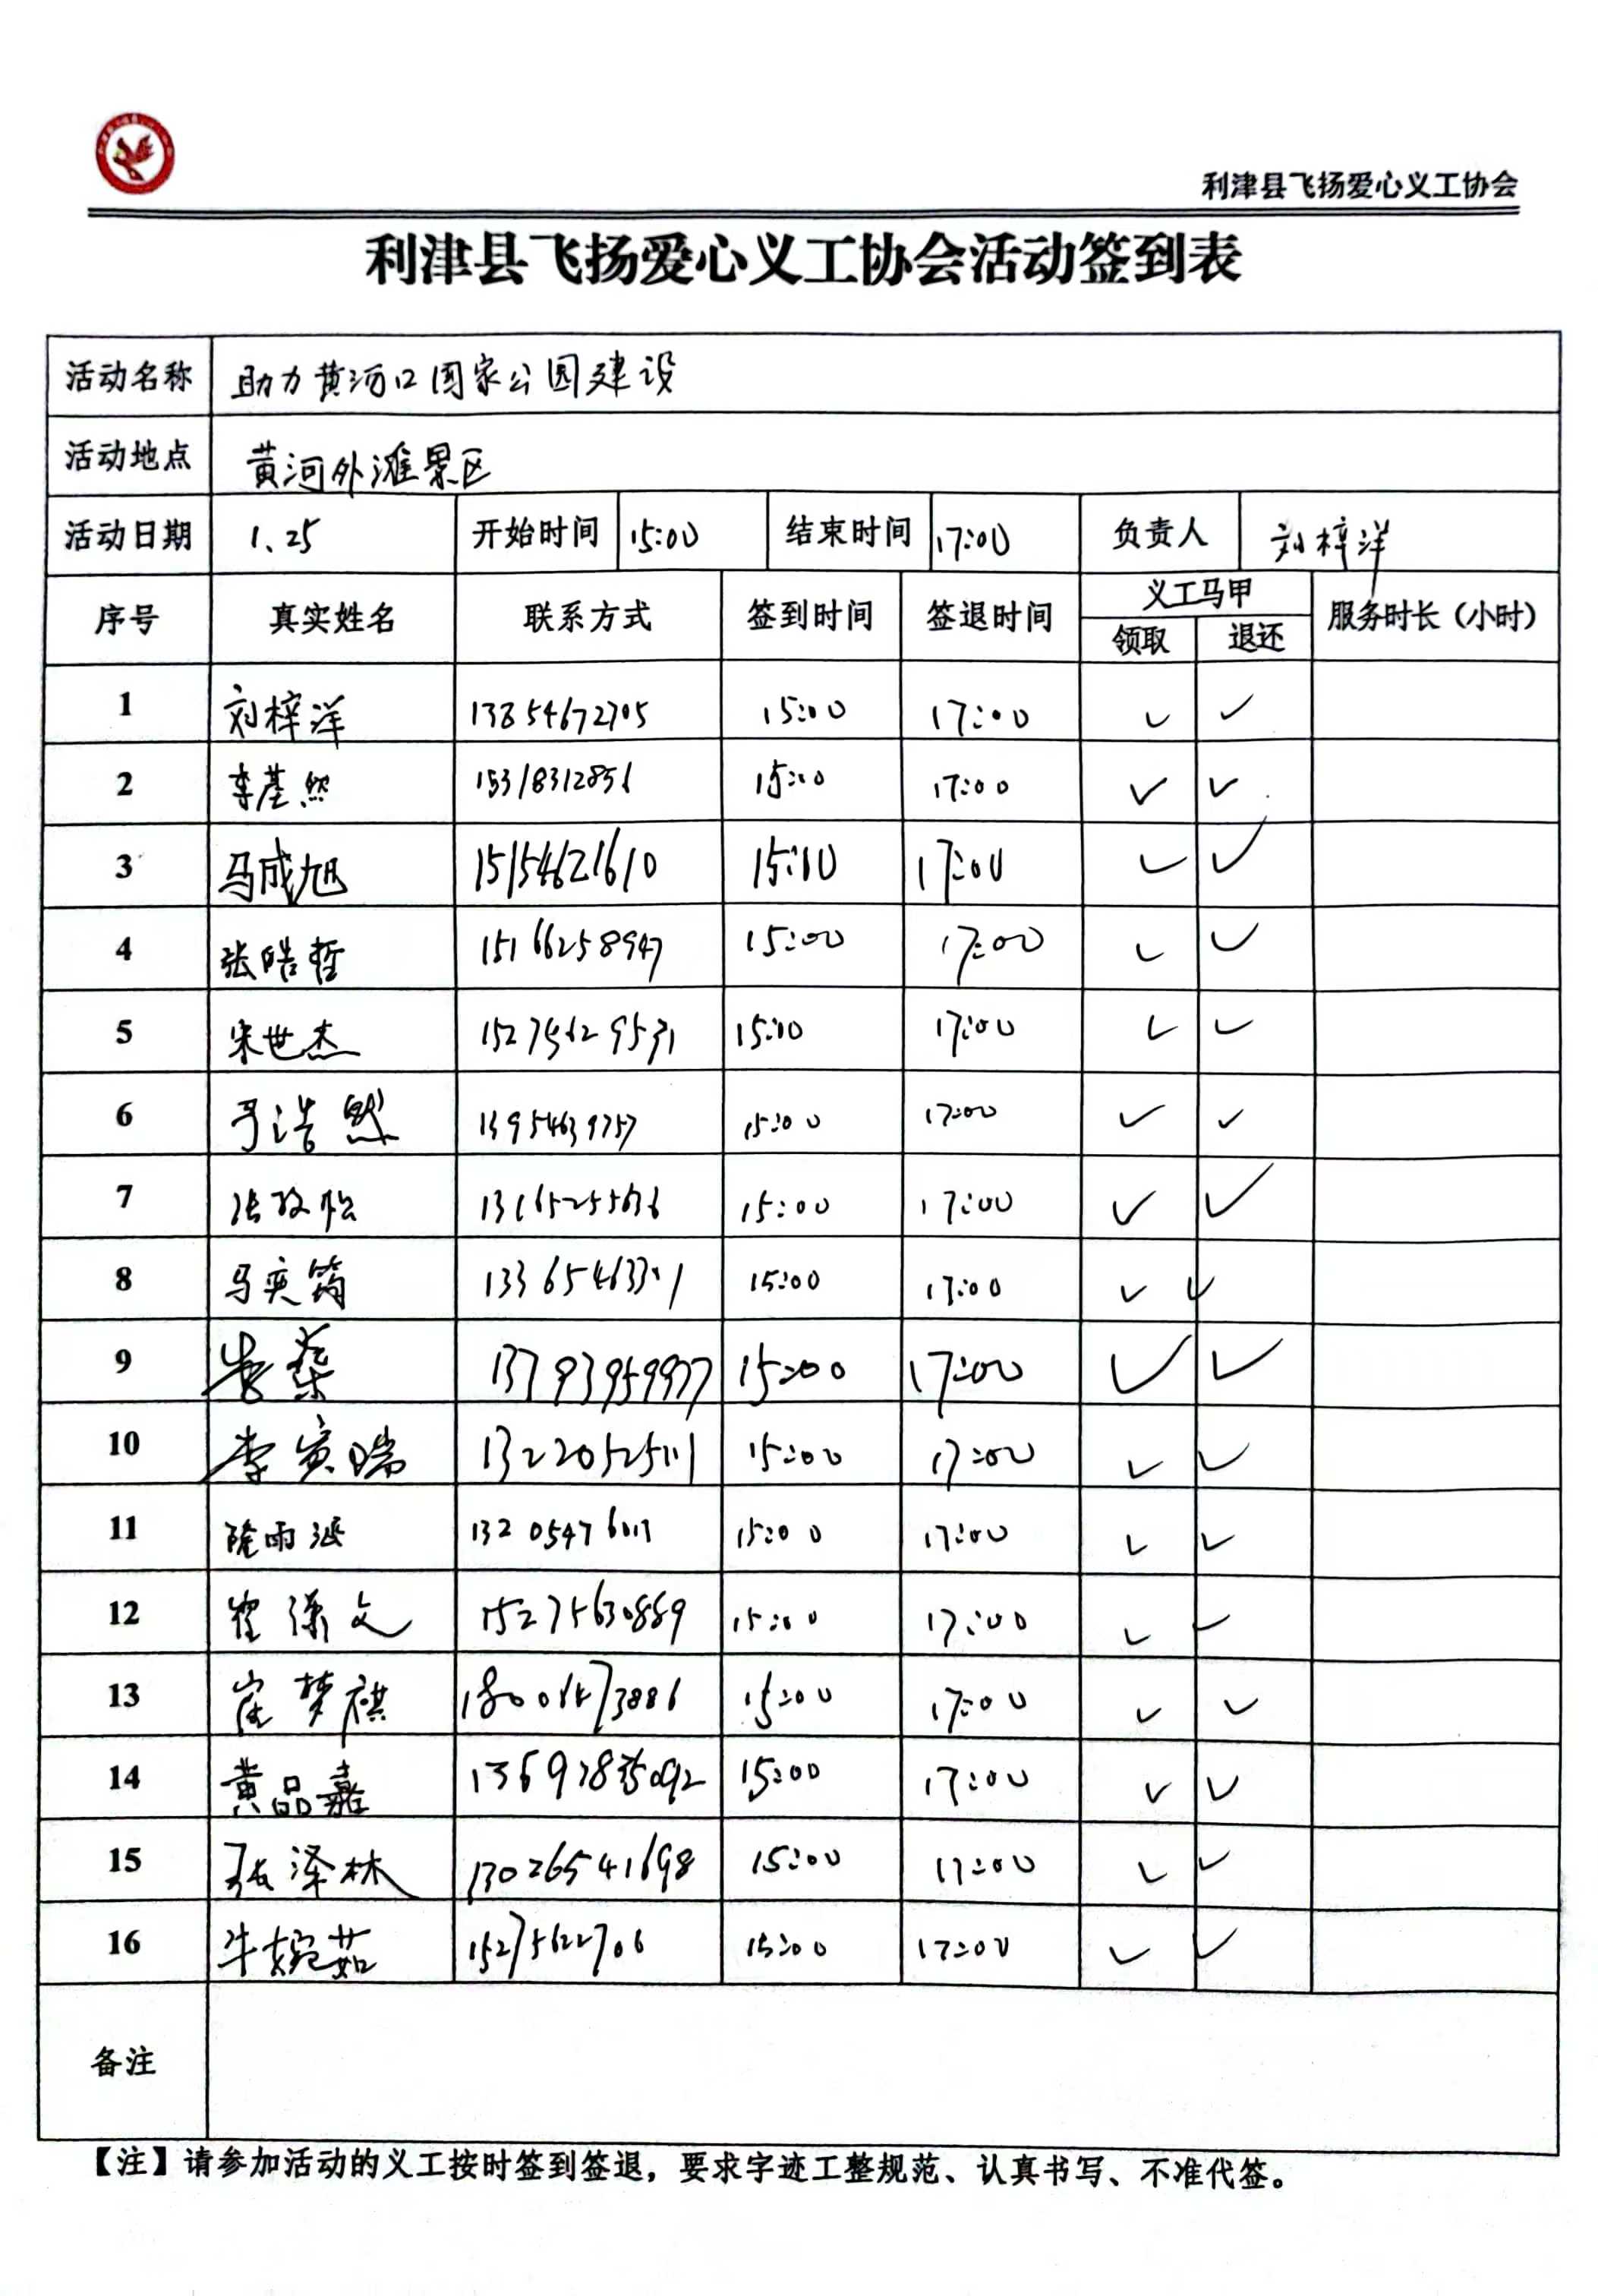 利津县飞扬爱心义工协会
利津县飞扬爱心义工协会活动签到表
活动名称 助力黄河口国家公园建设
活动地点 黄河外滩景区
活动日期 1.25 开始时间 15:00 结束时间 17:00 负责人 刘梓洋
序号 真实姓名 联系方式 签到时间 签退时间 义工马甲 服务时长（小时）
领取 退还
1 刘梓洋 13854672705 15:00 17:00 ✓ ✓
2 李基然 15318312856 15:00 17:00 ✓ ✓
3 马成旭 15154621610 15:00 17:00 ✓ ✓
4 张皓哲 15166258947 15:00 17:00 ✓ ✓
5 宋世杰 15275629531 15:00 17:00 ✓ ✓
6 于浩然 13954639757 15:00 17:00 ✓ ✓
7 13165255636 15:00 17:00 ✓ ✓
8 马奕筠 15:00 17:00 ✓ ✓
9 李燊 13793959977 15:00 17:00 ✓ ✓
10 李寅瑞 13220525111 15:00 17:00 ✓ ✓
11 隆雨涵 15:00 17:00 ✓ ✓
12 15275630889 15:00 17:00 ✓ ✓
13 崔梦祺 15:00 17:00 ✓ ✓
14 黄品嘉 15:00 17:00 ✓ ✓
15 张泽林 13026541698 15:00 17:00 ✓ ✓
16 牛婉茹 15275622706 15:00 17:00 ✓ ✓
备注
【注】请参加活动的义工按时签到签退，要求字迹工整规范、认真书写、不准代签。